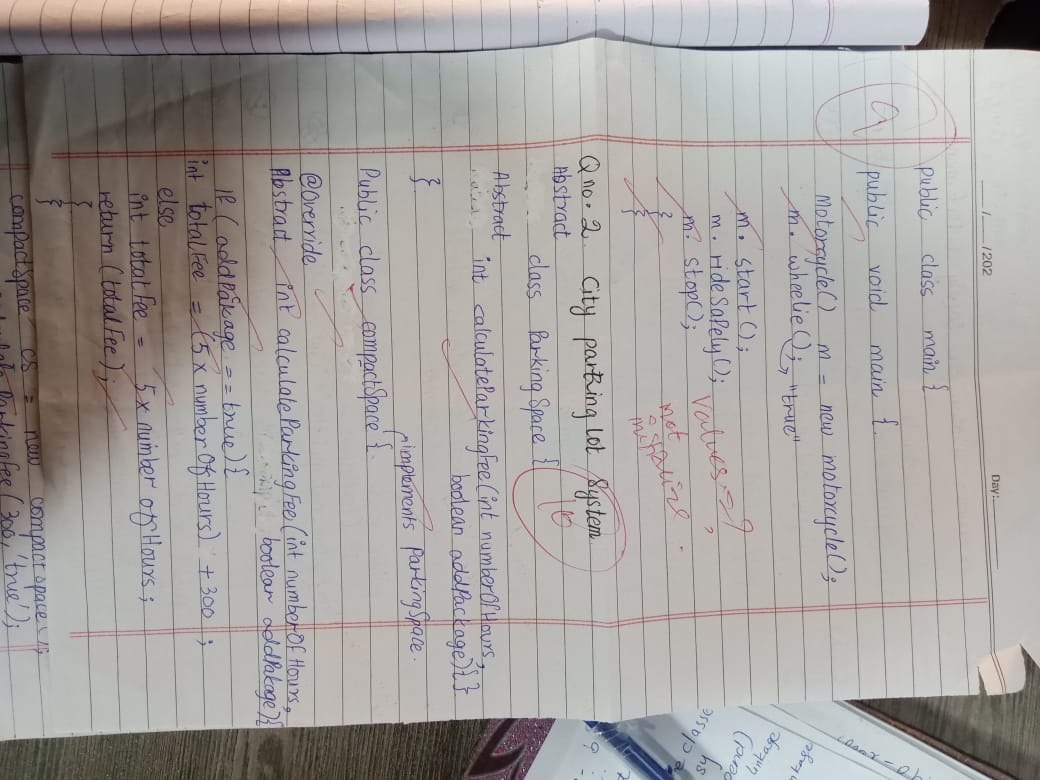 ___/___/202
Day:
public class main {
9
public void main {
Motorcycle() m = new motorcycle();
m. wheelie(); "true"
m. start();
m. rideSafely(); values=?
m. stop();
not
}
}
Q no. 2. City parking lot System.
10
Abstract class ParkingSpace {
Abstract int calculateParkingFee(int numberOfHours,
boolean addPackage){}
}
implements parkingSpace.
Public class compactSpace {
@Override
Abstract int calculateParkingFee(int numberOf Hours,
boolean addPakage){
IF ( addPakage == true){
int totalFee = (5 x numberOfHours) + 300 ;
else
int totalFee = 5 x number of Hours ;
return (totalFee);
}
}
compactSpace cs = new compactspace();
ParkingFee(300, 'true');